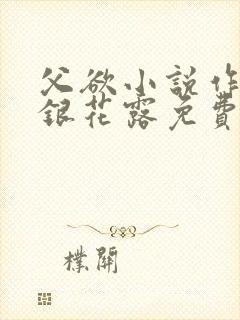 父欲小说作
銀花露免費
樸開